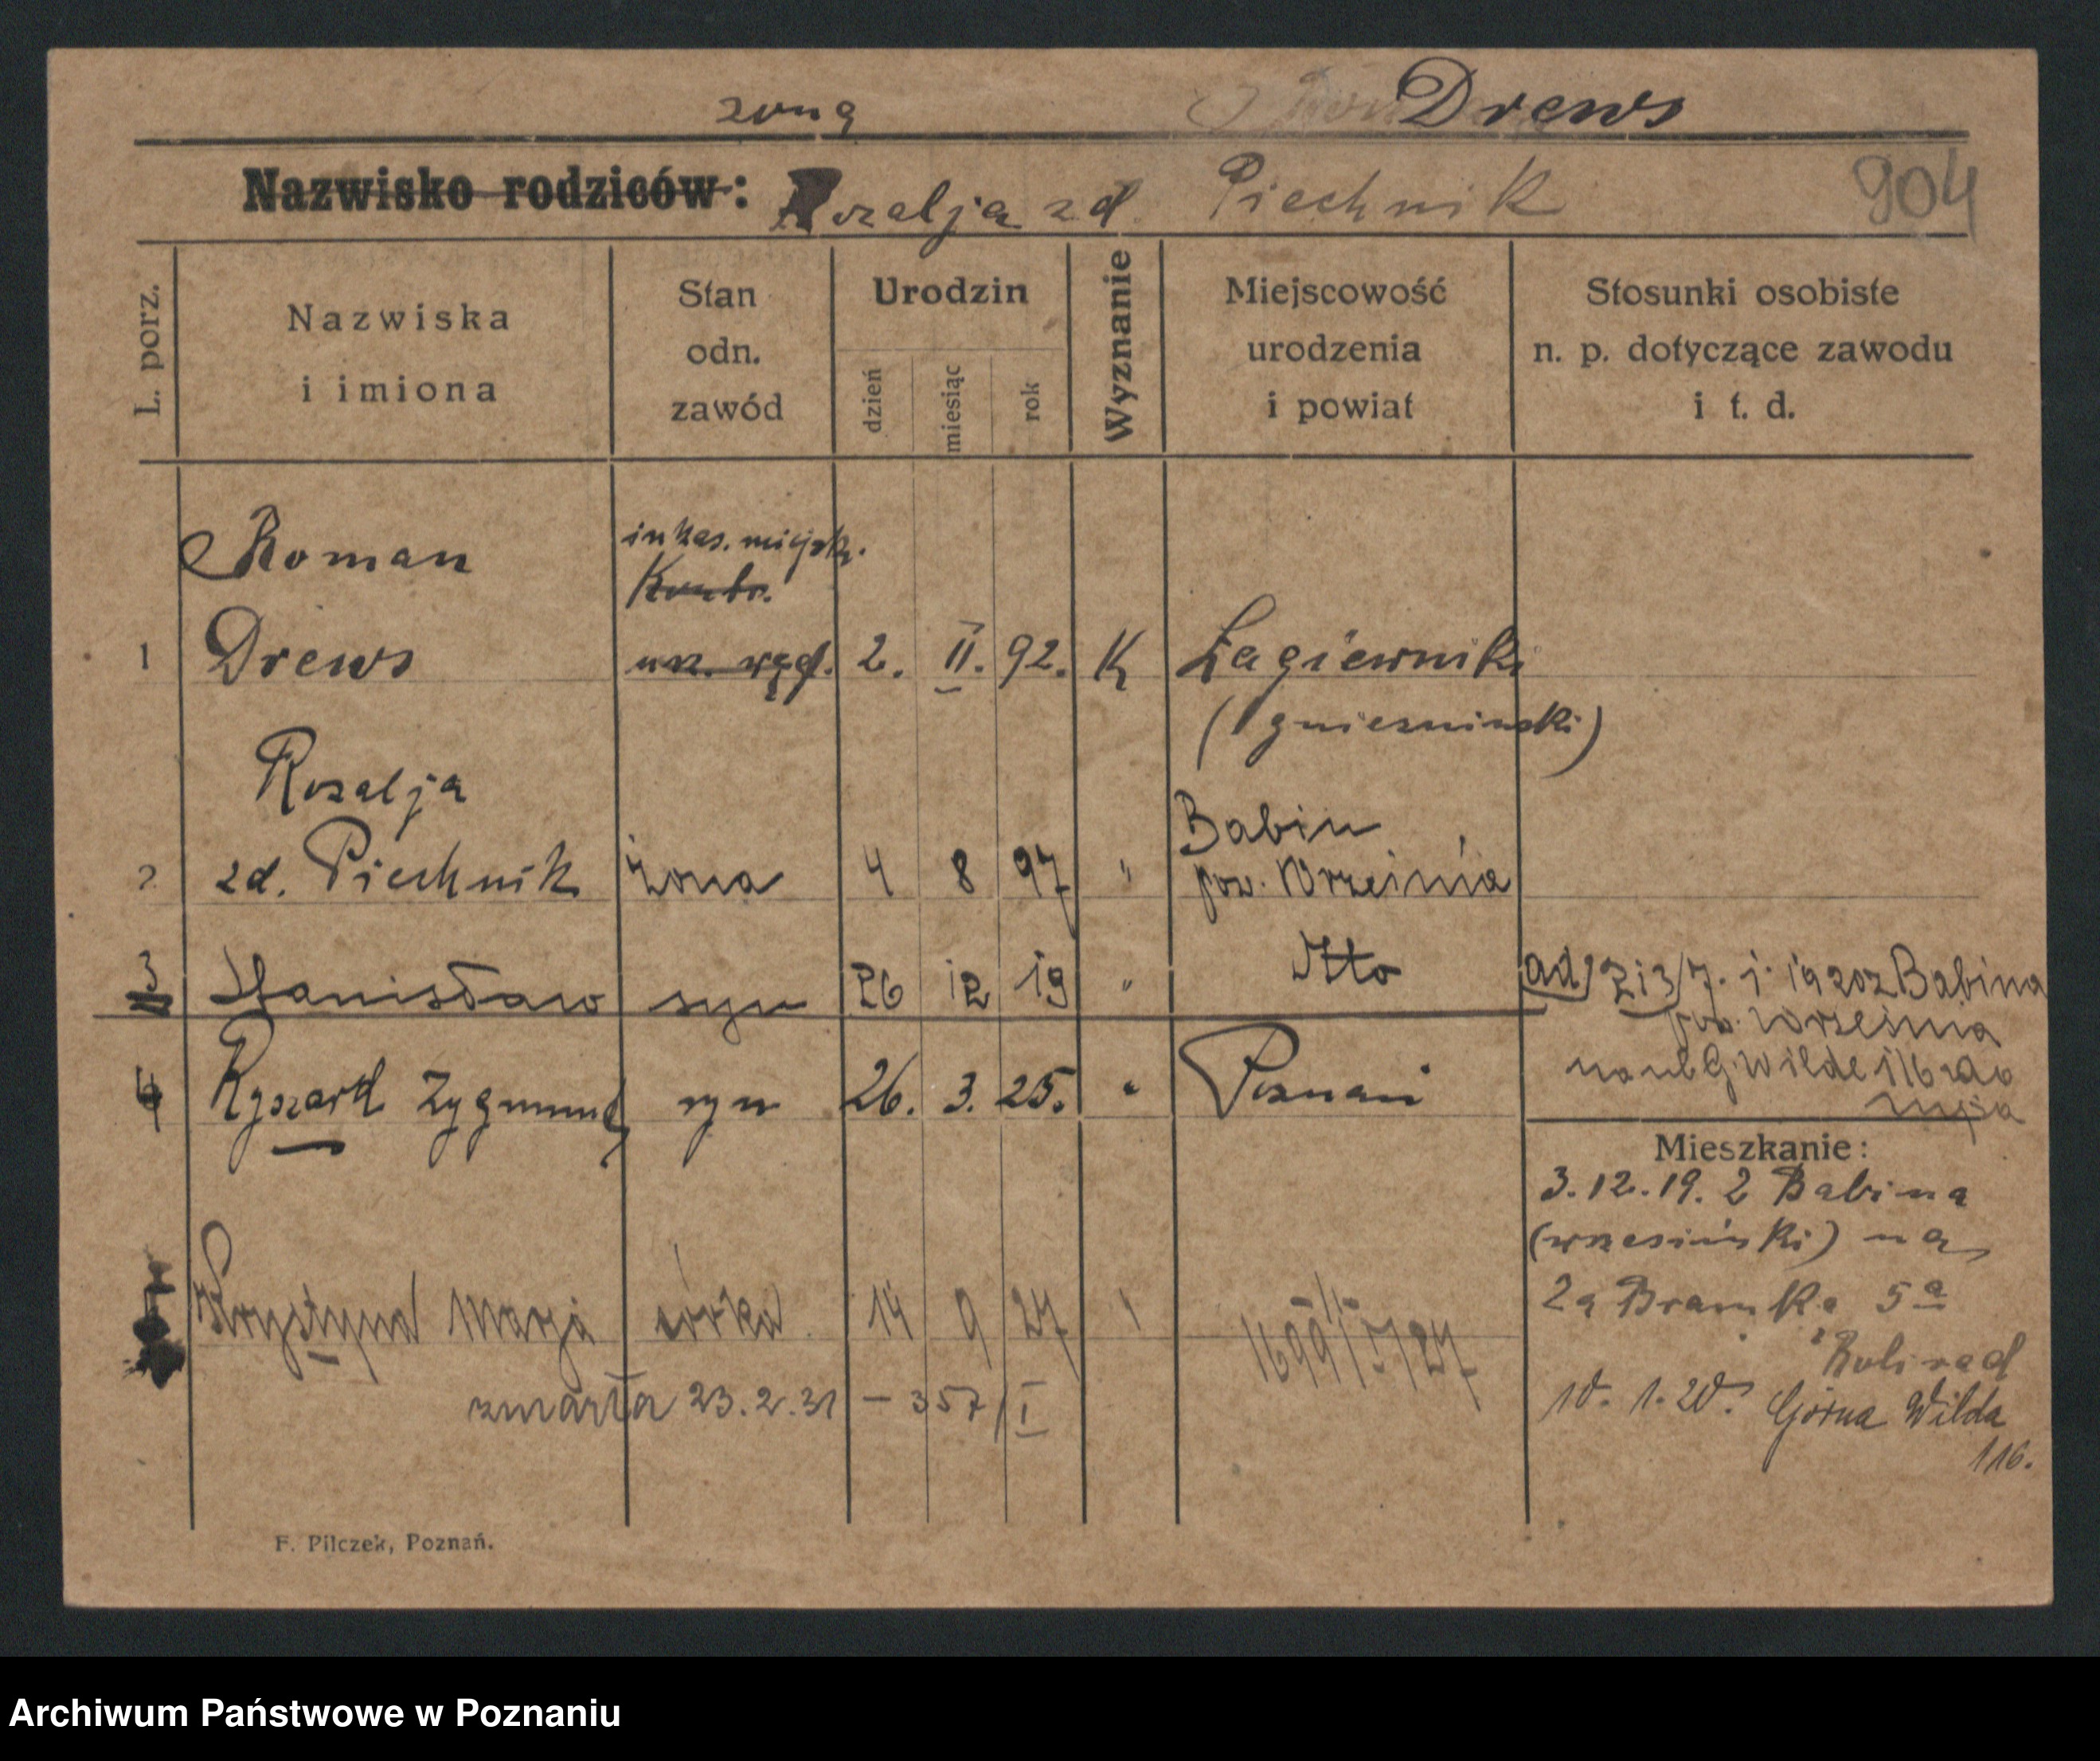 żona Drews
Nazwisko rodziców: Rozalja zd. Piechnik 904
L. porz.
Nazwiska
i imiona
Stan
odn.
zawód
Urodzin
dzień
miesiąc
rok
Wyznanie
Miejscowość
urodzenia
i powiat
Stosunki osobiste
n. p. dotyczące zawodu
i t. d.
Roman inkas. miejsk.
Kontr.
1 Drews urz. 2. II. 92. K Łagiewniki
(gniezninski)
Rozalja Babin
2 zd. Piechnik żona 4 8 97 " pow. Września
3 Stanisław syn 26 12 19 " dtto ad 2 i 3/7. 1. 1920 z Babina
pow. Września
G. Wilde 116 do
męża
4 Ryszard Zygmunt syn 26. 3. 25. " Poznań
Mieszkanie:
3.12.19. z Babina
(wrzesiński) na
Za Bramką 5a
Krystyna Marja córka 14 9 27 "
zmarła 23.2.31 – 357/I
10. 1. 20. Górna Wilda
116.
F. Pilczek, Poznań.
Archiwum Państwowe w Poznaniu